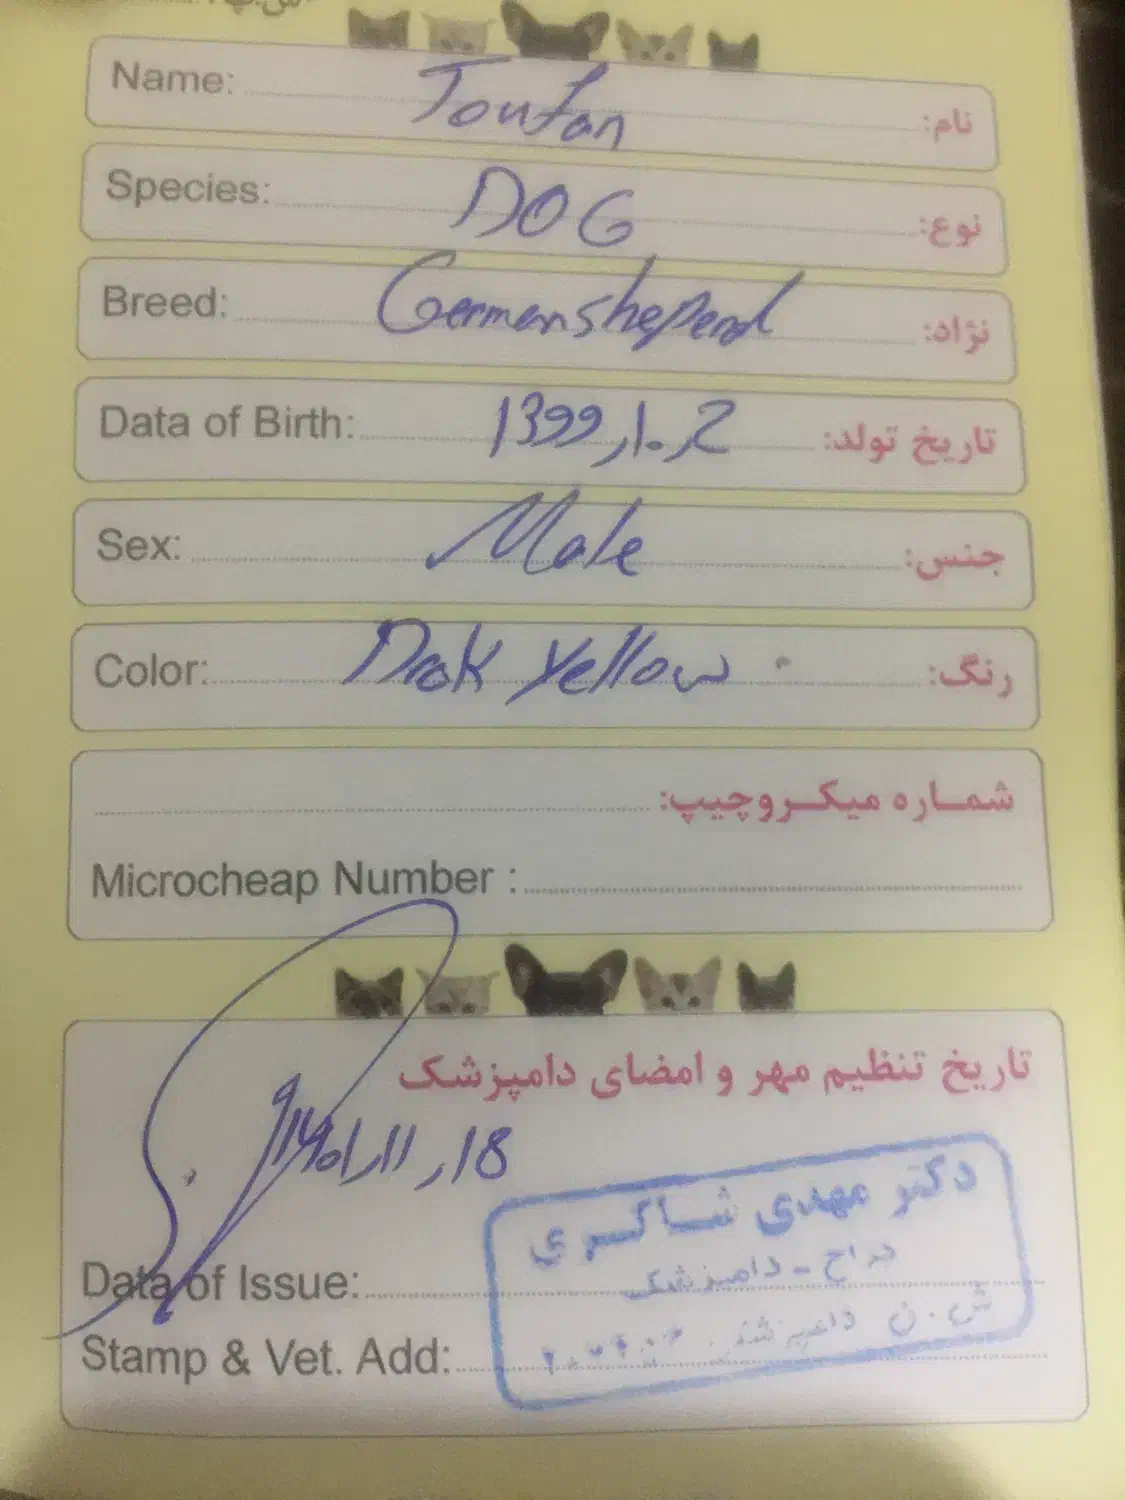 Name: Toufan نام:
Species: DOG نوع:
Breed: Germansheperd نژاد:
Data of Birth: 1399,10,2 تاریخ تولد:
Sex: Male جنس:
Color: Drak yellow رنگ:
شماره میکروچیپ:
Microcheap Number :
تاریخ تنظیم مهر و امضای دامپزشک
1401,11,18
دکتر مهدی شاکری
جراح - دامپزشک
Data of Issue:
ش.ن دامپزشکی
Stamp & Vet. Add: